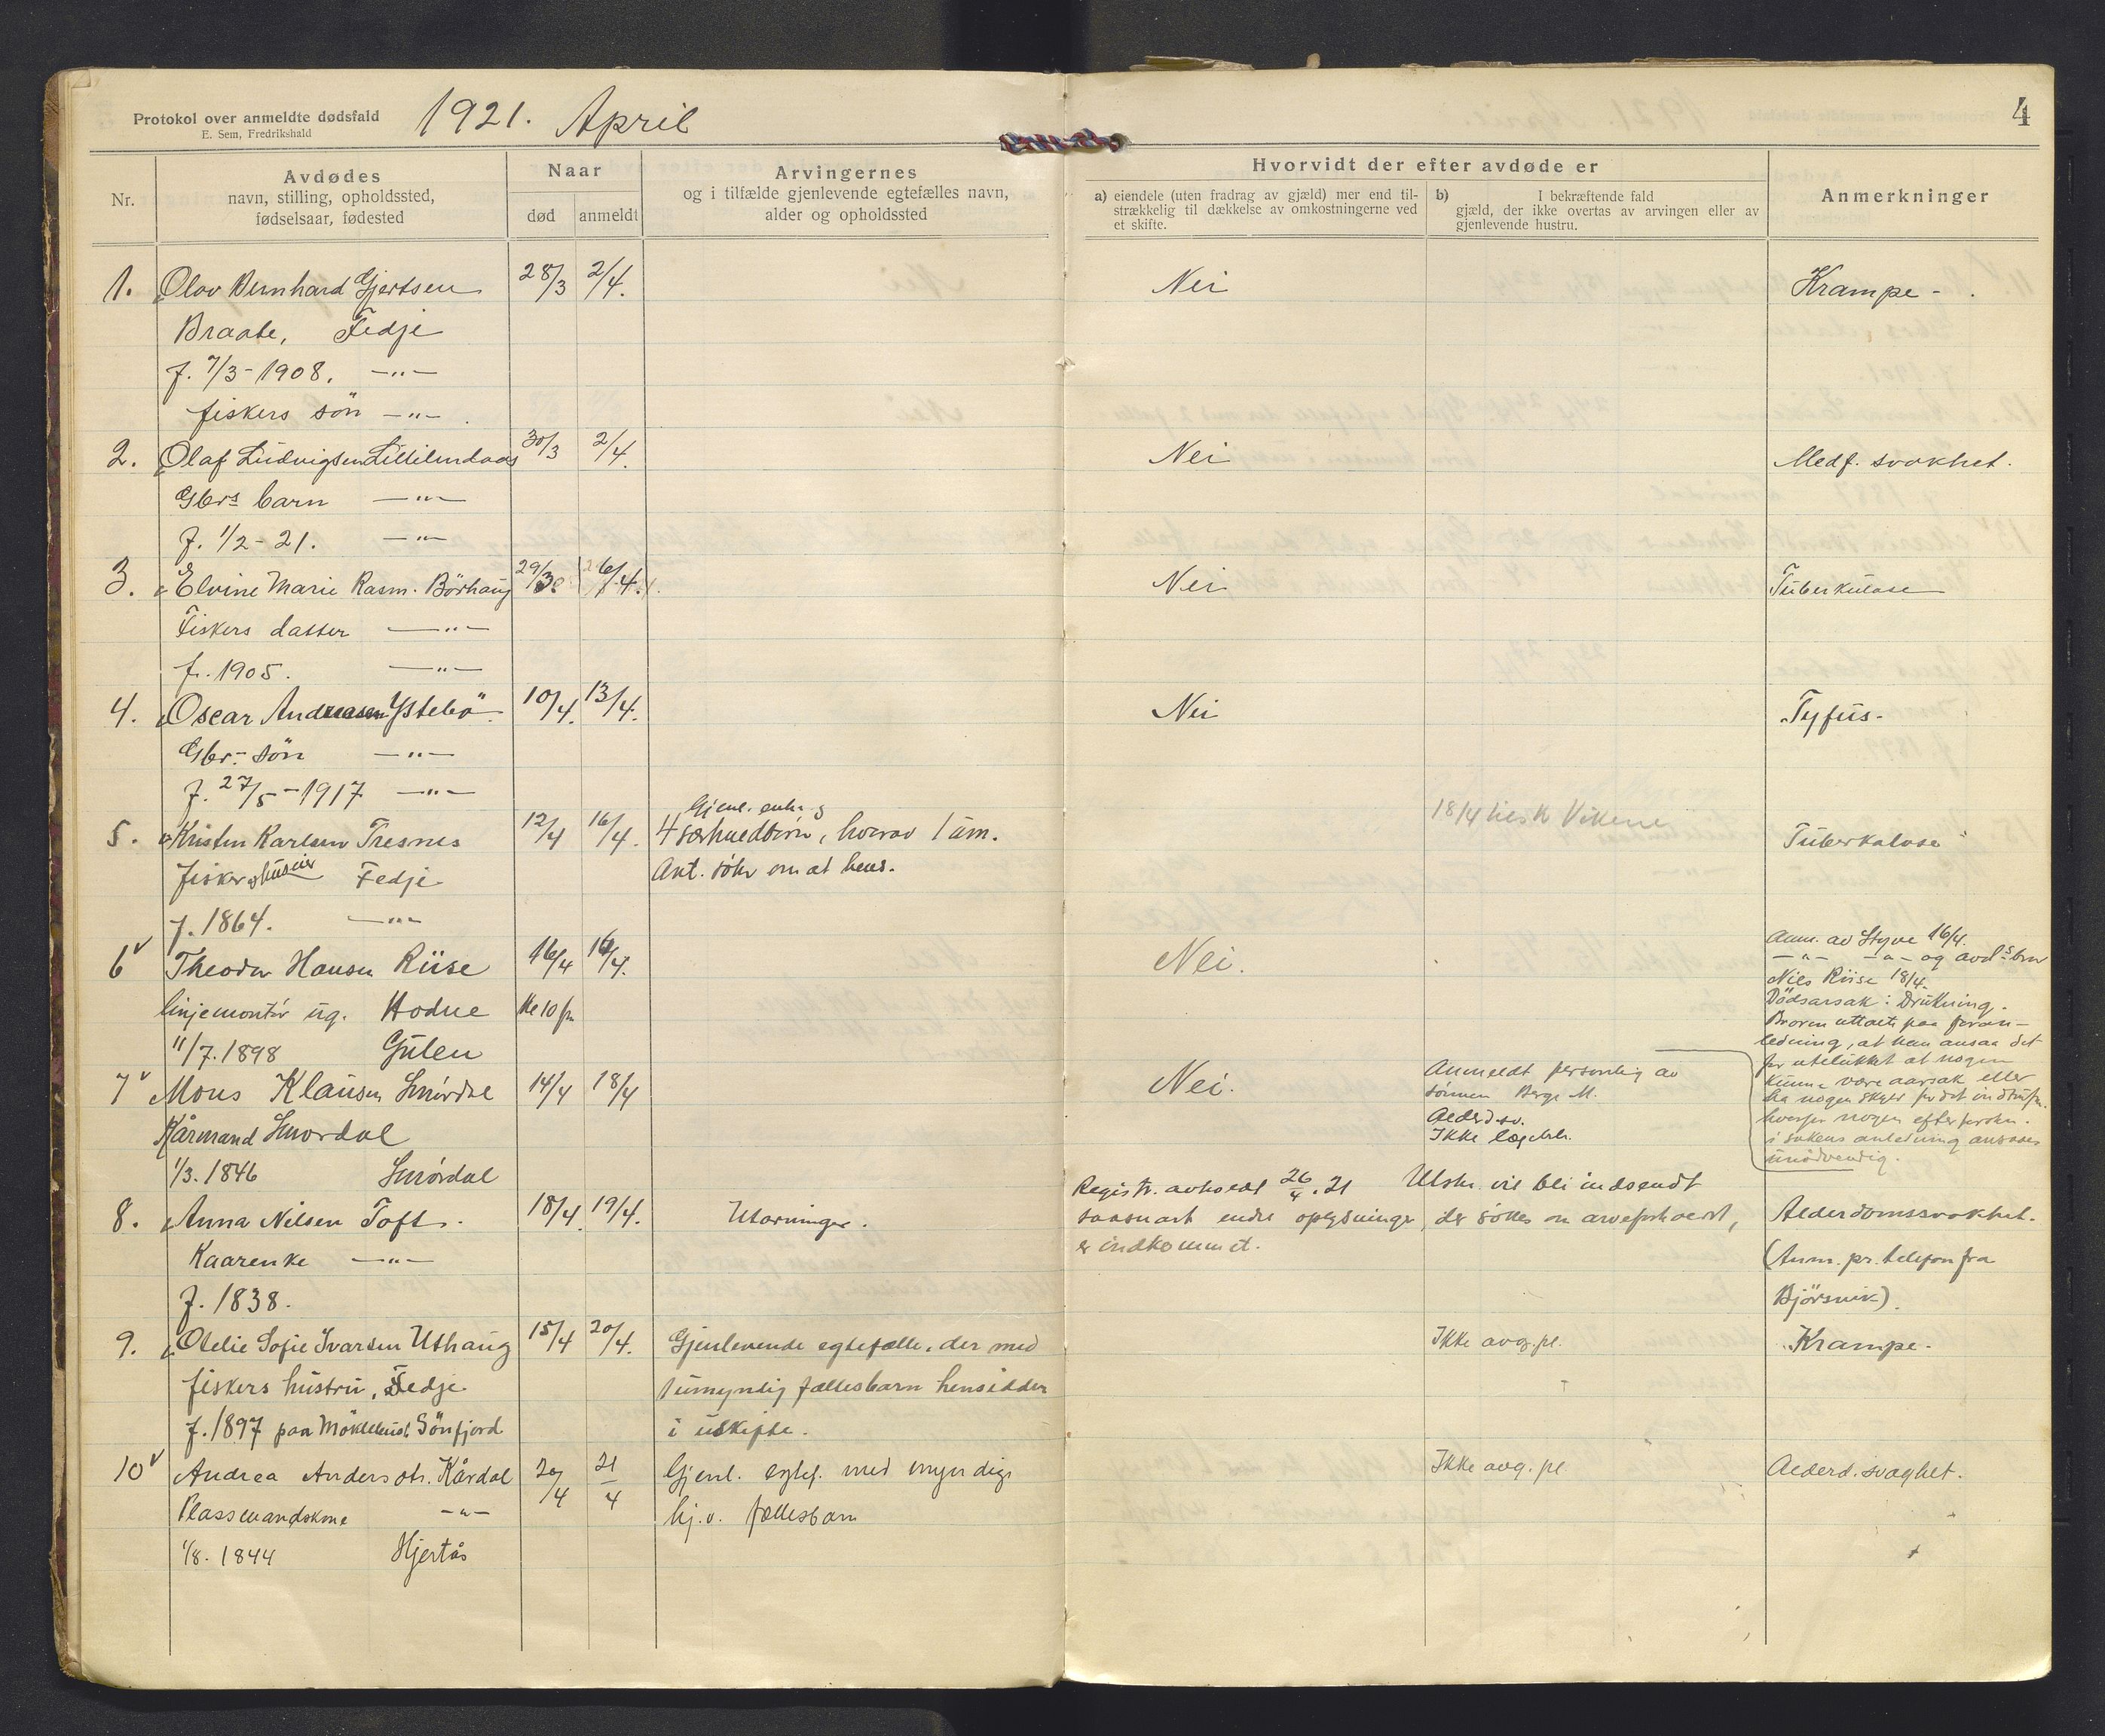 Protokol over anmeldte dødsfald
E. Sem, Fredrikshald
1921. April
4
Nr.
Avdødes
navn, stilling, opholdssted,
fødselsaar, fødested
Naar
død
anmeldt
Arvingernes
og i tilfælde gjenlevende egtefælles navn,
alder og opholdssted
Hvorvidt der efter avdøde er
a) eiendele (uten fradrag av gjæld) mer end til-
strækkelig til dækkelse av omkostningerne ved
et skifte.
b) I bekræftende fald
gjæld, der ikke overtas av arvingen eller av
gjenlevende hustru.
Anmerkninger
1. Olav Bernhard Gjertsen 28/3 2/4. Nei Krampe -
Braate, Fedje
f. 7/3-1908. -"-
fiskers sön -"-
2. Olaf Ludvigsen 30/3 2/4. Nei Medf. svakhet.
Gbrs barn -"-
f. 1/2-21. -"-
3. Elvine Marie Rasm. Börhaug 29/3 6/4. Nei Tuberkulose
Fiskers datter -"-
f. 1905. -"-
4. Oscar Andreasen Ystebö 10/4. 13/4. Nei Tyfus.
Gbr. sön -"-
f. 27/5-1917 -"-
5. Kristen Karlsen Tresnes 12/4 16/4. 4 særkuldbörn, hvorav 1 um. 18/4 Tuberkulose
Fisker og husmand Fedje Ant. söke om at hens.
f. 1864. -"-
6 Theodor Hansen Riise 16/4 16/4. Nei.
linjemontör ug. Hodne kl 10 fm
11/7.1898 Gulen
Anm. av Styve 16/4.
-"- -"- og avds bror
Nils Riise 18/4.
Dödsarsak: Drukning.
Broren uttalte paa foran-
ledning, at han ansaa det
for utelukket at nogen
kunne være aarsak eller
ha nogen skyld for det
hvorfor nogen efterforskn.
i sakens anledning ansaaes
unödvendig.
7 Mons Klausen Smördal 14/4 18/4 Nei.
Kårmand Smördal
1/3.1846 Smördal
Anmeldt personlig av
sönnen Berge M.
Alderd.sv.
Ikke lægebeh.
8. Anna Nilsen Toft. 18/4. 19/4. Utarvinger.
Kaarenke -"-
f. 1838.
Registr. avholdt 26/4.21 Utskr. vil bli indsendt
saasnart endel oplysninger, der sökes om arveforhold,
er indkommet.
Alderdomssvakhet.
(Anm. pr. telefon fra
Björsvik).
9. Otelie Sofie Ivarsen Uthaug 15/4 20/4. Gjenlevende egtefælle, der med Ikke avg.pl. Krampe.
fiskers hustru, Fedje 1 umyndig fællesbarn hensidder
f. 1897 paa Söndfjord i uskifte.
10 Andrea Andersdtr. Kårdal 20/4 21/4 Gjenl. egtef. med myndige Ikke avg. pl. Alderd. svaghet.
Plassmandskone -"- hj.v. fællesbarn
1/8. 1844 Hjertås